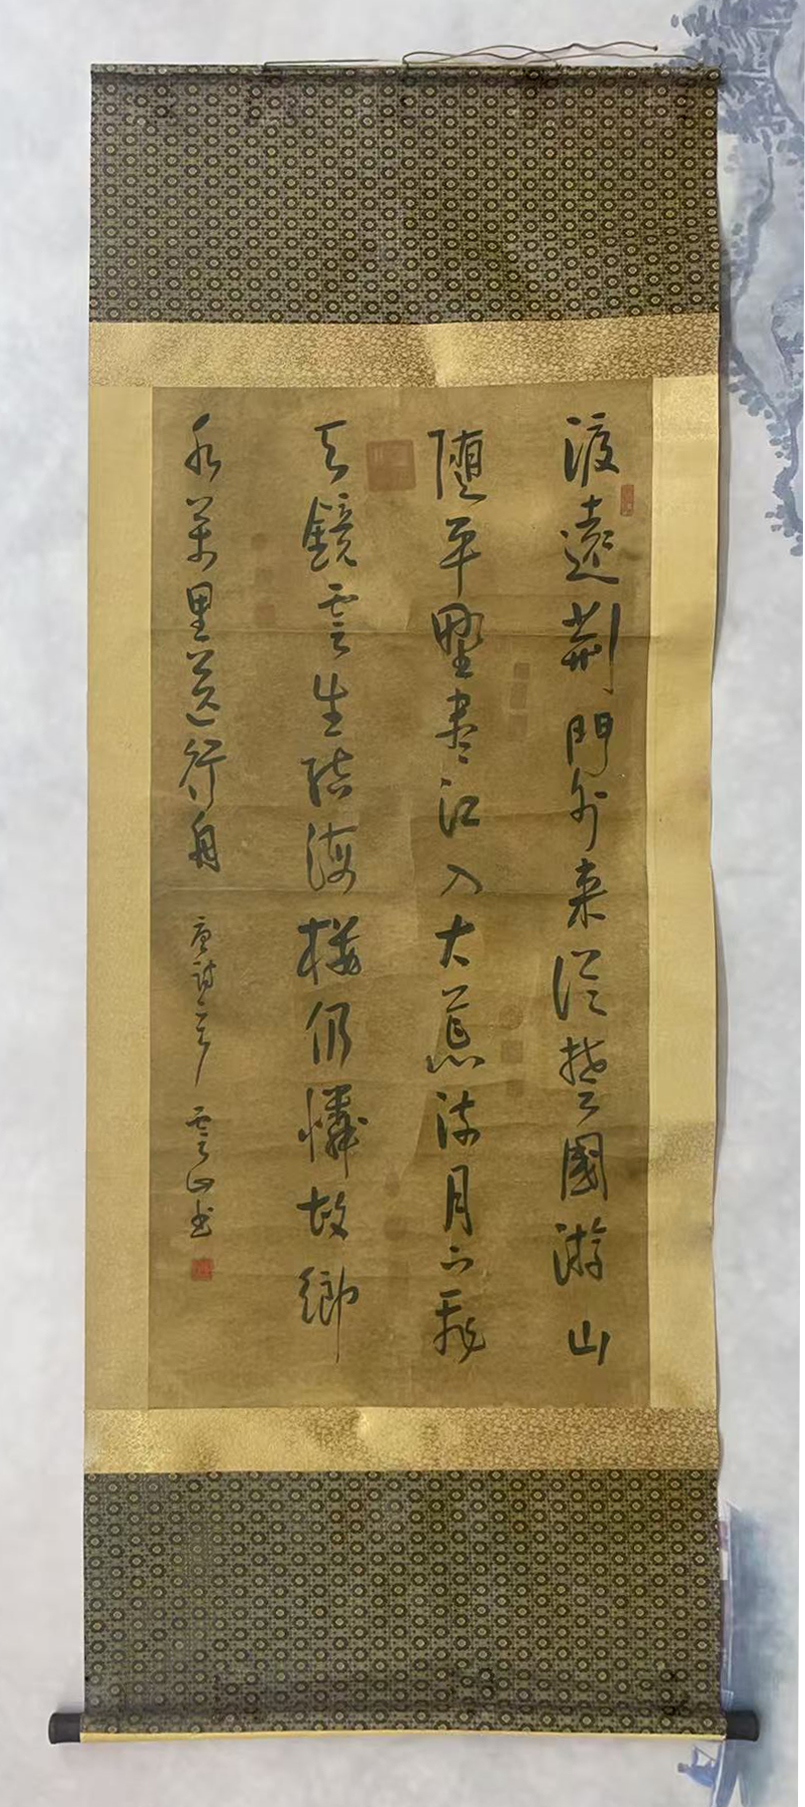 渡遠荊門外来從楚國游山
隨平野盡江入大荒流月下飛
天鏡雲生結海樓仍憐故鄉
水萬里送行舟 唐詩 雲山书